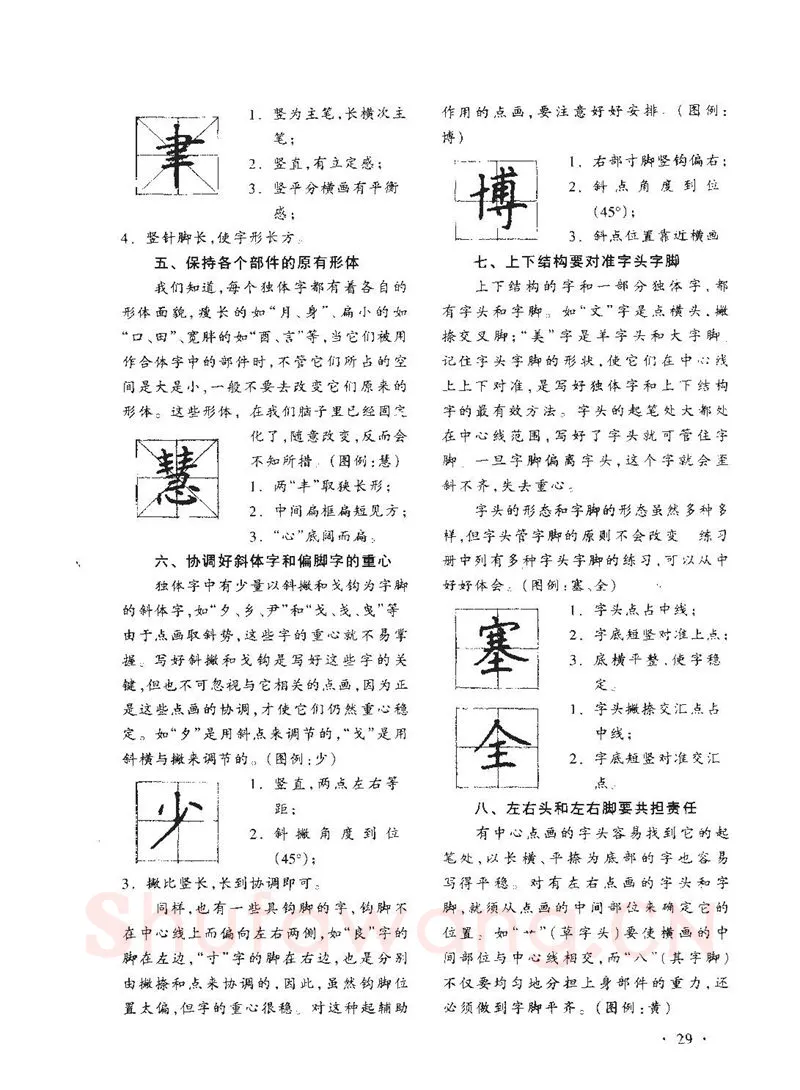 聿
1．竖为主笔,长横次主
笔;
2．竖直,有立定感;
3．竖平分横画有平衡
感;
4．竖针脚长,使字形长方。
五、保持各个部件的原有形体
我们知道,每个独体字都有着各自的
形体面貌,瘦长的如“月、身”、扁小的如
“口、田”、宽胖的如“酉、言”等,当它们被用
作合体字中的部件时,不管它们所占的空
间是大是小,一般不要去改变它们原来的
形体。这些形体，在我们脑子里已经固定
化了,随意改变,反而会
不知所措．(图例:慧)
慧
1．两“丰”取狭长形;
2．中间扁框扁短见方;
3．“心”底阔而扁。
六、协调好斜体字和偏脚字的重心
独体字中有少量以斜撇和戈钩为字脚
的斜体字,如“夕、乡、尹”和“戈、戋、曳”等
由于点画取斜势,这些字的重心就不易掌
握。写好斜撇和戈钩是写好这些字的关
键,但也不可忽视与它相关的点画,因为正
是这些点画的协调,才使它们仍然重心稳
定。如“夕”是用斜点来调节的,“戈”是用
斜横与撇来调节的。(图例:少)
少
1．竖直,两点左右等
距;
2．斜撇角度到位
(45°);
3．撇比竖长,长到协调即可。
同样,也有一些具钩脚的字,钩脚不
在中心线上而偏向左右两侧,如“良”字的
脚在左边,“寸”字的脚在右边,也是分别
由撇捺和点来协调的,因此,虽然钩脚位
置太偏,但字的重心很稳。对这种起辅助
作用的点画,要注意好好安排．(图例:
博)
博
1．右部寸脚竖钩偏右;
2．斜点角度到位
(45°);
3．斜点位置靠近横画
七、上下结构要对准字头字脚
上下结构的字和一部分独体字,都
有字头和字脚。如“文”字是点横头,撇
捺交叉脚;“美”字是羊字头和大字脚．
记住字头字脚的形状,使它们在中心线
上上下对准,是写好独体字和上下结构
字的最有效方法。字头的起笔处大都处
在中心线范围,写好了字头就可管住字
脚．一旦字脚偏离字头,这个字就会歪
斜不齐,失去重心。
字头的形态和字脚的形态虽然多种多
样,但字头管字脚的原则不会改变　练习
册中列有多种字头字脚的练习,可以从中
好好体会。(图例:塞、全)
塞
1．字头点占中线;
2．字底短竖对准上点;
3．底横平整,使字稳
定．
全
1．字头撇捺交汇点占
中线;
2．字底短竖对准交汇
点．
八、左右头和左右脚要共担责任
有中心点画的字头容易找到它的起
笔处,以长横、平捺为底部的字也容易
写得平稳。对有左右点画的字头和字
脚,就须从点画的中间部位来确定它的
位置。如“艹”(草字头)要使横画的中
间部位与中心线相交,而“八”(其字脚)
不仅要均匀地分担上身部件的重力,还
必须做到字脚平齐。(图例:黄)
· 29 ·
shufawang.CN